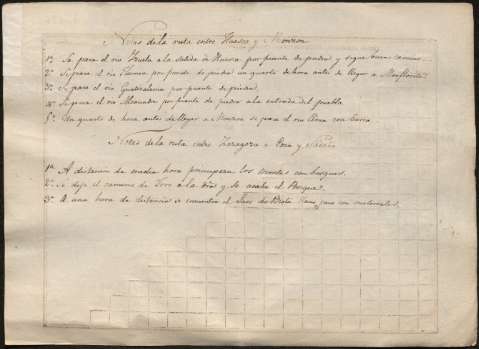 Notas de la ruta entre Huesca y Monzon
1ª. Se pasa el rio Isuela a la salida de Huesca por puente de piedra y sigue buen camino.
2ª. Se pasa el rio Flumen por puente de piedra un quarto de hora antes de llegar a Monflorite.
3ª. Se pasa el rio Guatizalema por puente de piedra.
4ª. Se pasa el rio Alcanadre por puente de piedra a la entrada del pueblo.
5ª. Un quarto de hora antes de llegar a Monzon se pasa el rio Cinca con barca.
Notas de la ruta entre Zaragoza a
1ª. A distancia de media hora los montes con bosques.
2ª. Se deja el camino de a la dra y se acaba el Bosque.
3ª. A una hora de distancia se encuentra el